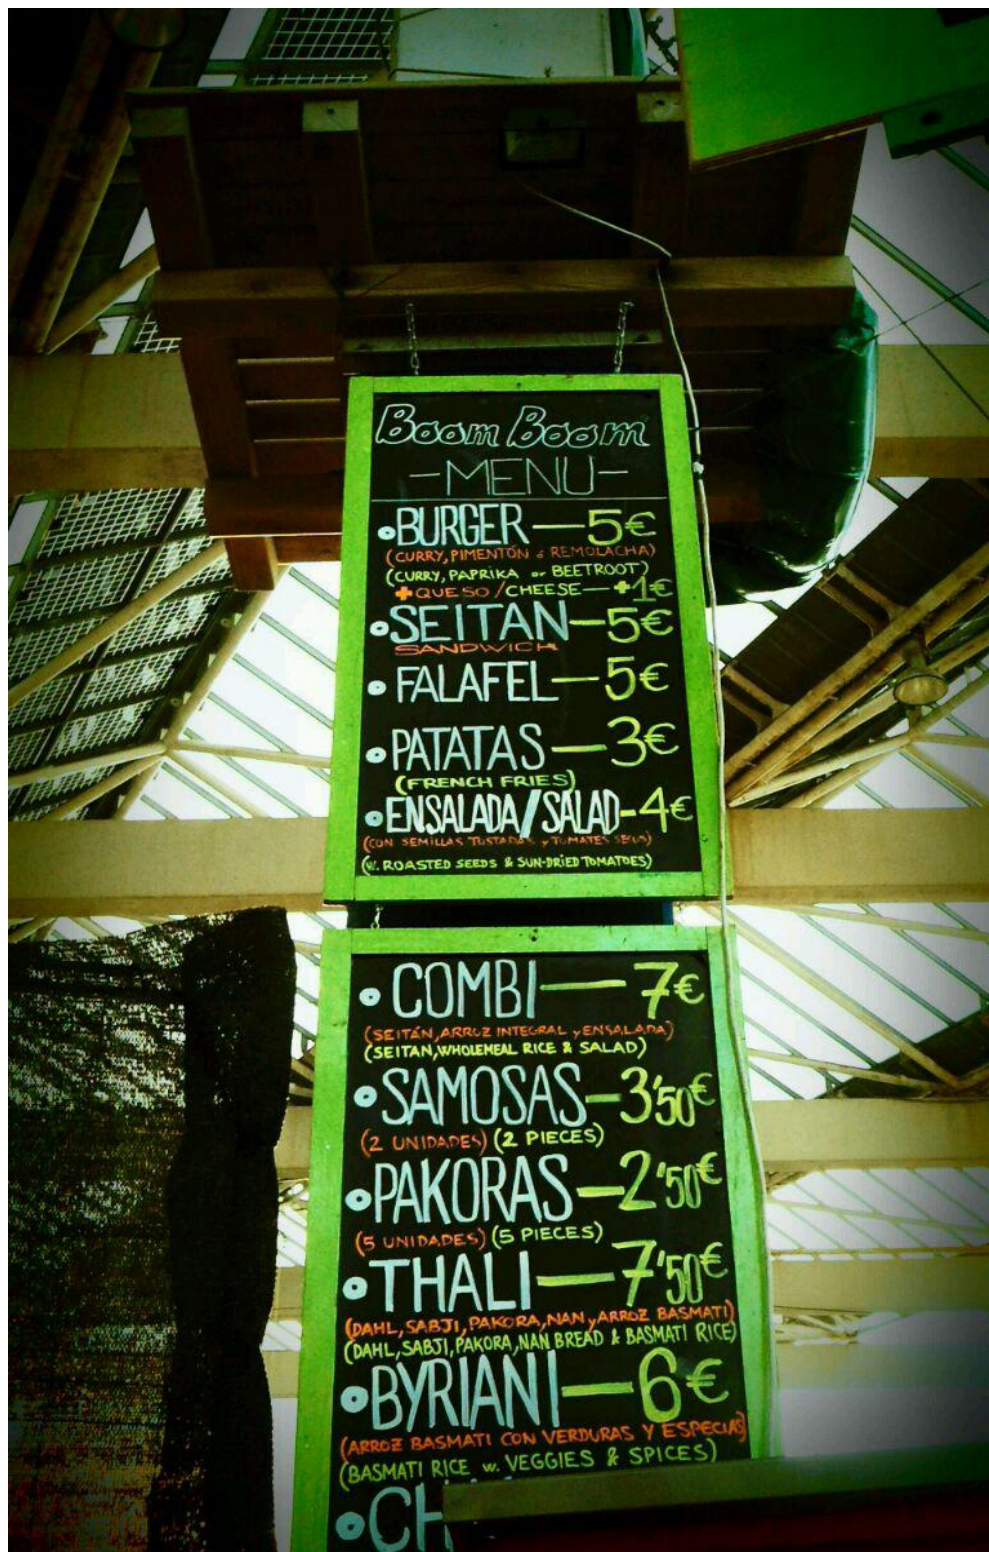 Boom Boom
-MENU-
•BURGER—5€
(CURRY, PIMENTÓN ó REMOLACHA)
(CURRY, PAPRIKA or BEETROOT)
+QUESO/CHEESE—+1€
•SEITAN—5€
SANDWICH
•FALAFEL—5€
•PATATAS—3€
(FRENCH FRIES)
•ENSALADA/SALAD-4€
(CON SEMILLAS TOSTADAS y TOMATES SECOS)
(w. ROASTED SEEDS & SUN-DRiED TOMATOES)
•COMBI—7€
(SEITÁN, ARROZ INTEGRAL y ENSALADA)
(SEITAN, WHOLEMEAL RICE & SALAD)
•SAMOSAS—3'50€
(2 UNIDADES) (2 PIECES)
•PAKORAS—2'50€
(5 UNIDADES) (5 PIECES)
•THALI—7'50€
(DAHL, SABJI, PAKORA, NAN y ARROZ BASMATI)
(DAHL, SABJI, PAKORA, NAN BREAD & BASMATI RICE)
•BYRIANI—6€
(ARROZ BASMATI CON VERDURAS Y ESPECIAS)
(BASMATI RICE w. VEGGIES & SPICES)